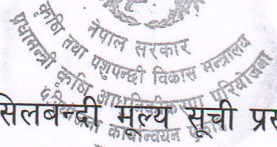 नेपाल सरकार
कृषि तथा पशुपन्छी विकास मन्त्रालय
प्रधानमन्त्री कृषि आधुनिकीकरण परियोजना
कार्यान्वयन
सिलबन्दी मूल्य सूची प्रस